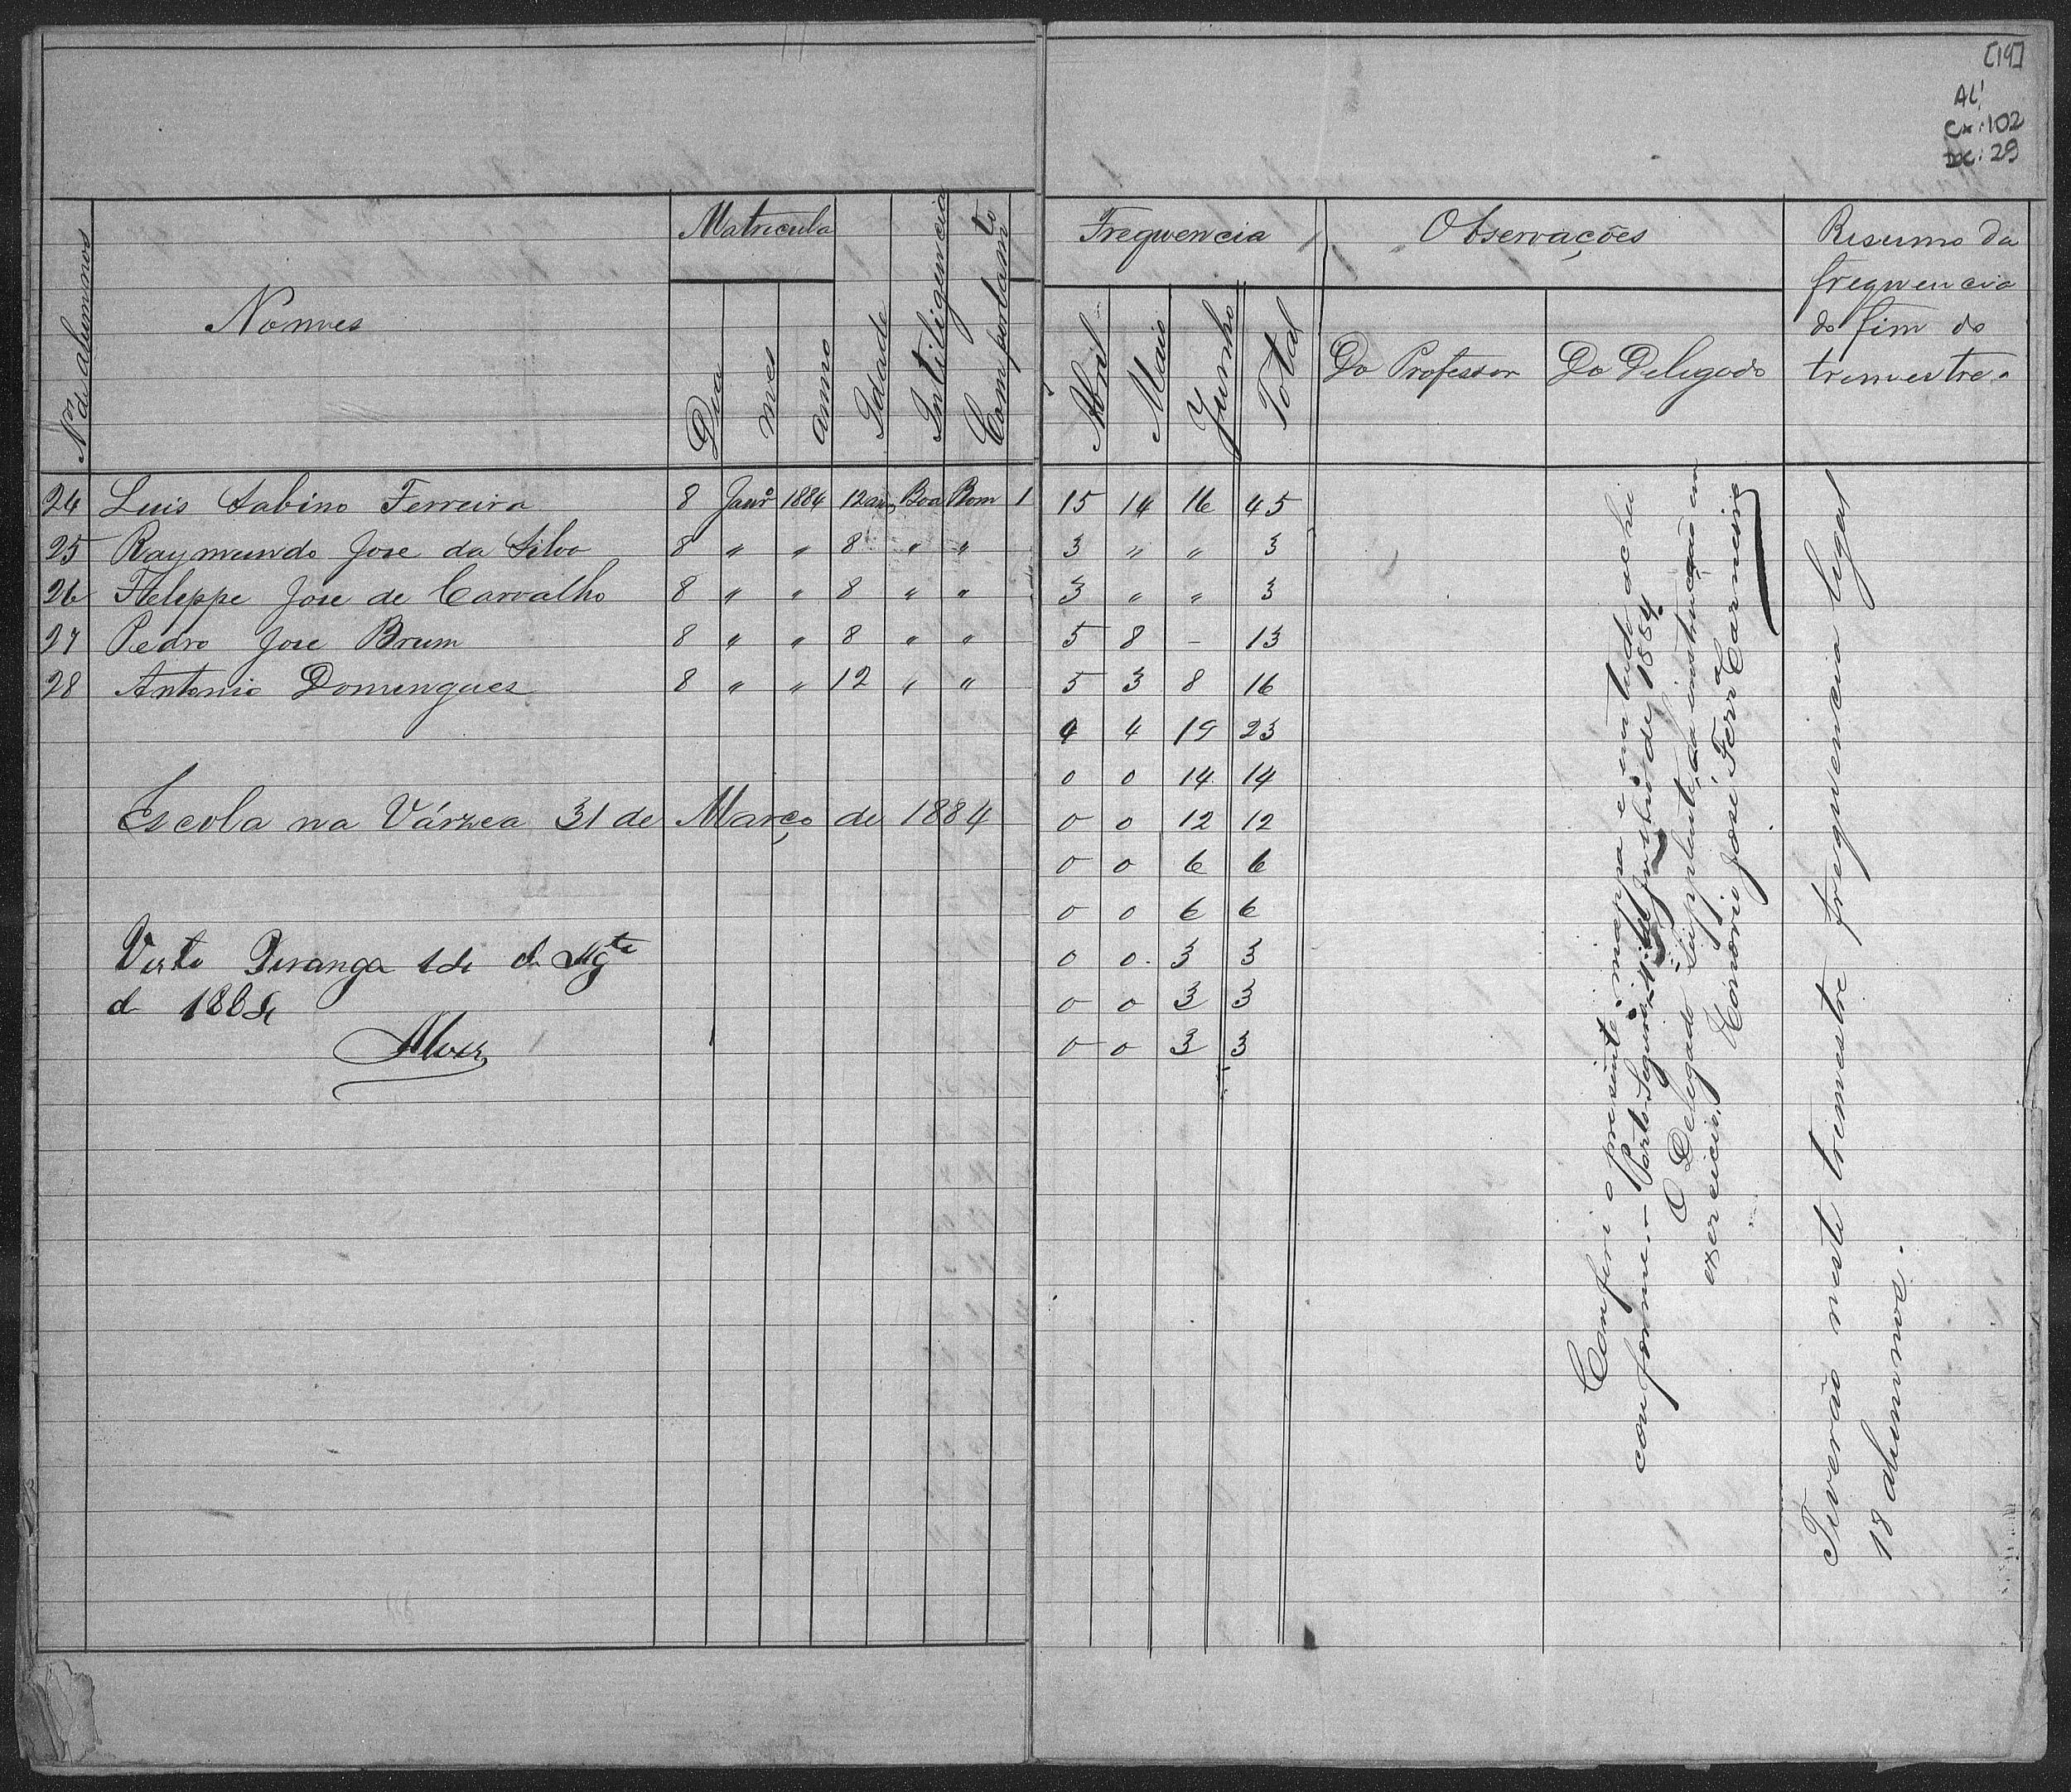 [19]
AL!
Cx: 102
Doc: 29
Nrº de alumnos
Nomes
Matricula
Dia
mes
anno
Idade
Intiligencia
Comportamto
24 Luis Sabino Ferreira 8 Janrº 1884 12 ans Boa Bom 1
25 Raymundo Jose da Silva 8 " " 8 " "
26 Feleppe Jose de Carvalho 8 " " 8 " "
27 Pedro Jose Brum 8 " " 8 " "
28 Antonio Domingues 8 " " 12 " "
Escola na Várzea 31 de Março de 1884
Visto Piranga 1 de Agto
d 1884
Alves
Frequencia
Abril
Maio
Junho
Total
Observações
Do Professor
Do Delegado
Resumo da
frequencia
do fim do
trimestre.
15 14 16 45
3 " " 3
3 " " 3
5 8 - 13
5 3 8 16
4 19 23
0 0 14 14
0 0 12 12
0 0 6 6
0 0 6 6
0 0 3 3
0 0 3 3
0 0 3 3
Conferi o presente mappa e em tudo achei
conforme. Porto Seguro, de Julho de 1884.
O Delegado Supplente da instrucção em
exercicio, Honorio José Ferrª Carneiro
Tiverão neste trimestre frequencia legal
18 alumnos.